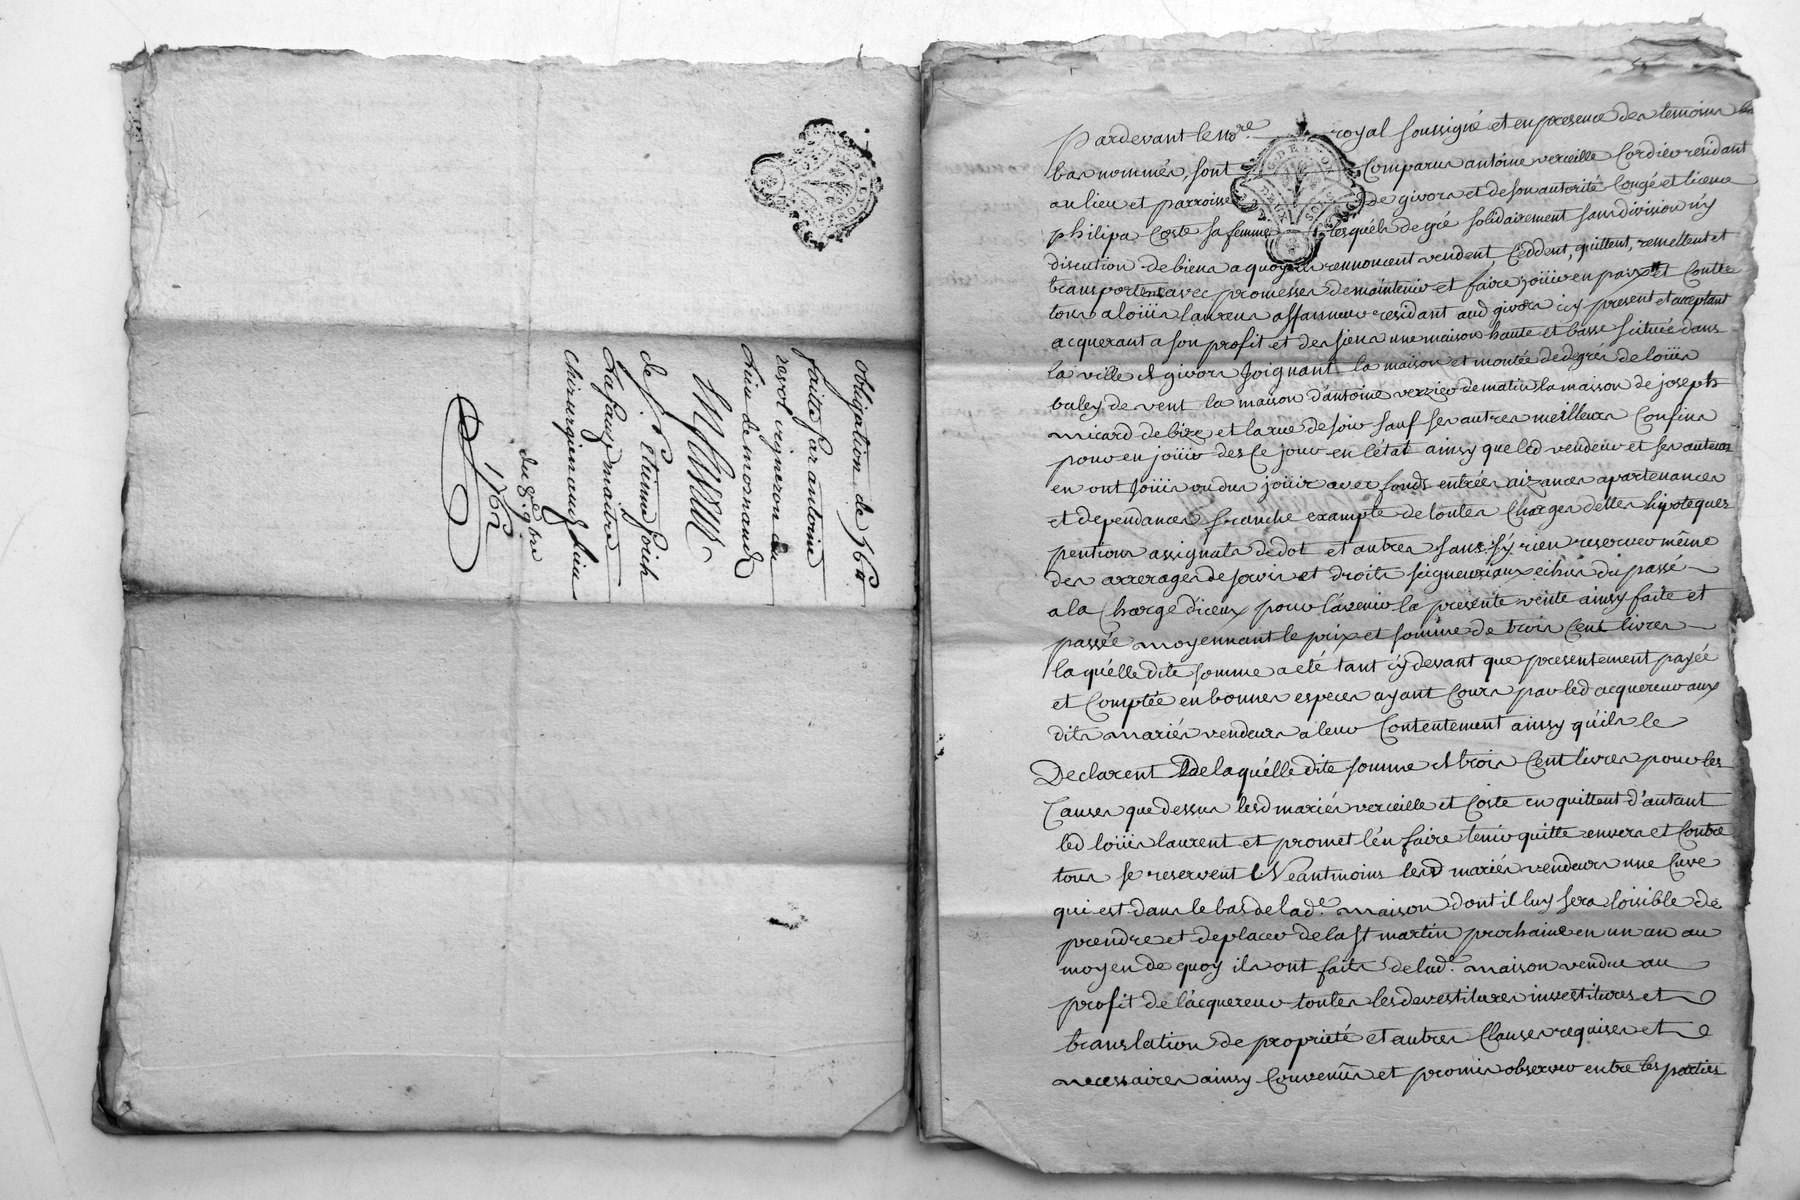 obligation de 96 lt
faitte par antoine
revol vigneron du
lieu de mornand
de S.r Etienne
maitre
chirurgien aud lieu
du 8.e 9bre
1762
Pardevant le no.re royal soussigné et en presence des temoins
bas nommés, sont Comparus antoine verieille Cordier residant
au lieu et parroisse de givors et de son autorité Congé et licence
philipa Coste sa femme lesquéls de gré solidairement sans division ny
discution de biens a quoy ils rennoncent vendent, Ceddent, quittent, remettent et
transportent avec promesses de maintenir et faire joüir en paix et Contre
tous a loüis laurens affanneur residant aud givors icy present et acceptant
acquerant a son profit et des siens une maison haute et basse scituée dans
la ville de givors Joignant la maison et montée de degrés de loüis
baley de vent la maison d'antoine verrier de matin la maison de joseph
micard de bize et la rue de soir sauf ses autres meilleurs Confins
pour en joüir des Ce jour en l'état ainsy que led vendeur et ses auteurs
en ont Joüis ou dus joüir avec fonds entrées aizances apartenances
et dependances franche exampte de toutes Charges dettes hipoteques
pentions assignats de dot et autres sans s'y rien reserver même
des arrerages de servis et droits seigneuriaux echus du passé
a la Charge d'iceux pour l'avenir la presente vente ainsy faite et
passée moyennant le prix et somme de trois Cent livres
la quélle dite somme a eté tant cy devant que presentement payée
et Comptée en bonnes especes ayant Cours par led acquereur aux
dits mariés vendeurs a leur Contentement ainsy qu'ils le
Declarent De laquélle dite somme de trois Cent livres pour les
Causes que dessus lesd mariés verieille et Coste en quittent d'autant
led loüis laurent et promet l'en faire tenir quitte envers et Contre
tous se reservent Neantmoins lesd mariés vendeurs une Cuve
qui est dans le bas de lad.e maison dont il luy sera loisible de
prendre et deplacer de la St martin prochaine en un an au
moyen de quoy ils ont faits de lad.e maison vendue au
profit de l'acquereur toutes les devestitures investitures et
translation de propriété et autres Clauses requises et
necessaires ainsy Convenües et promis observer entre les parties